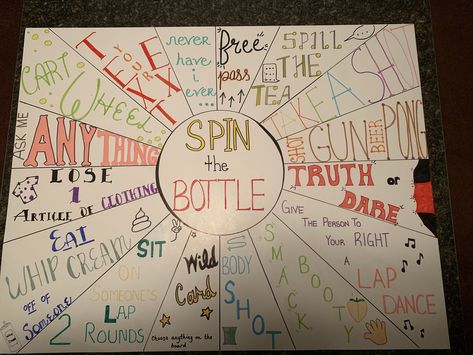 SPIN
the
BOTTLE
free
pass
SPILL
THE
TEA
TAKE A SHOT
SHOT
GUN
BEER
PONG
TRUTH or
DARE
GIVE THE PERSON TO
YOUR RIGHT
A
LAP
DANCE
SMACK
BOOTY
BODY
SHOT
Wild
Card
choose anything on the
board
SIT
ON
SOMEONE'S
LAP
2 ROUNDS
EAT
WHIP CREAM
OFF OF
SOMEONE
LOSE
1
ARTICLE OF CLOTHING
ASK ME
ANYTHING
CART
WHEEL
TEXT
YOUR
EX
never
have i
ever...